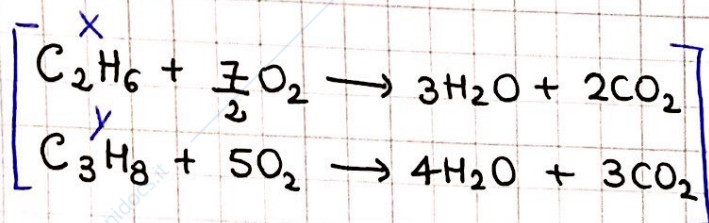 x
C₂H₆ + 7/2 O₂ → 3H₂O + 2CO₂
y
C₃H₈ + 5O₂ → 4H₂O + 3CO₂